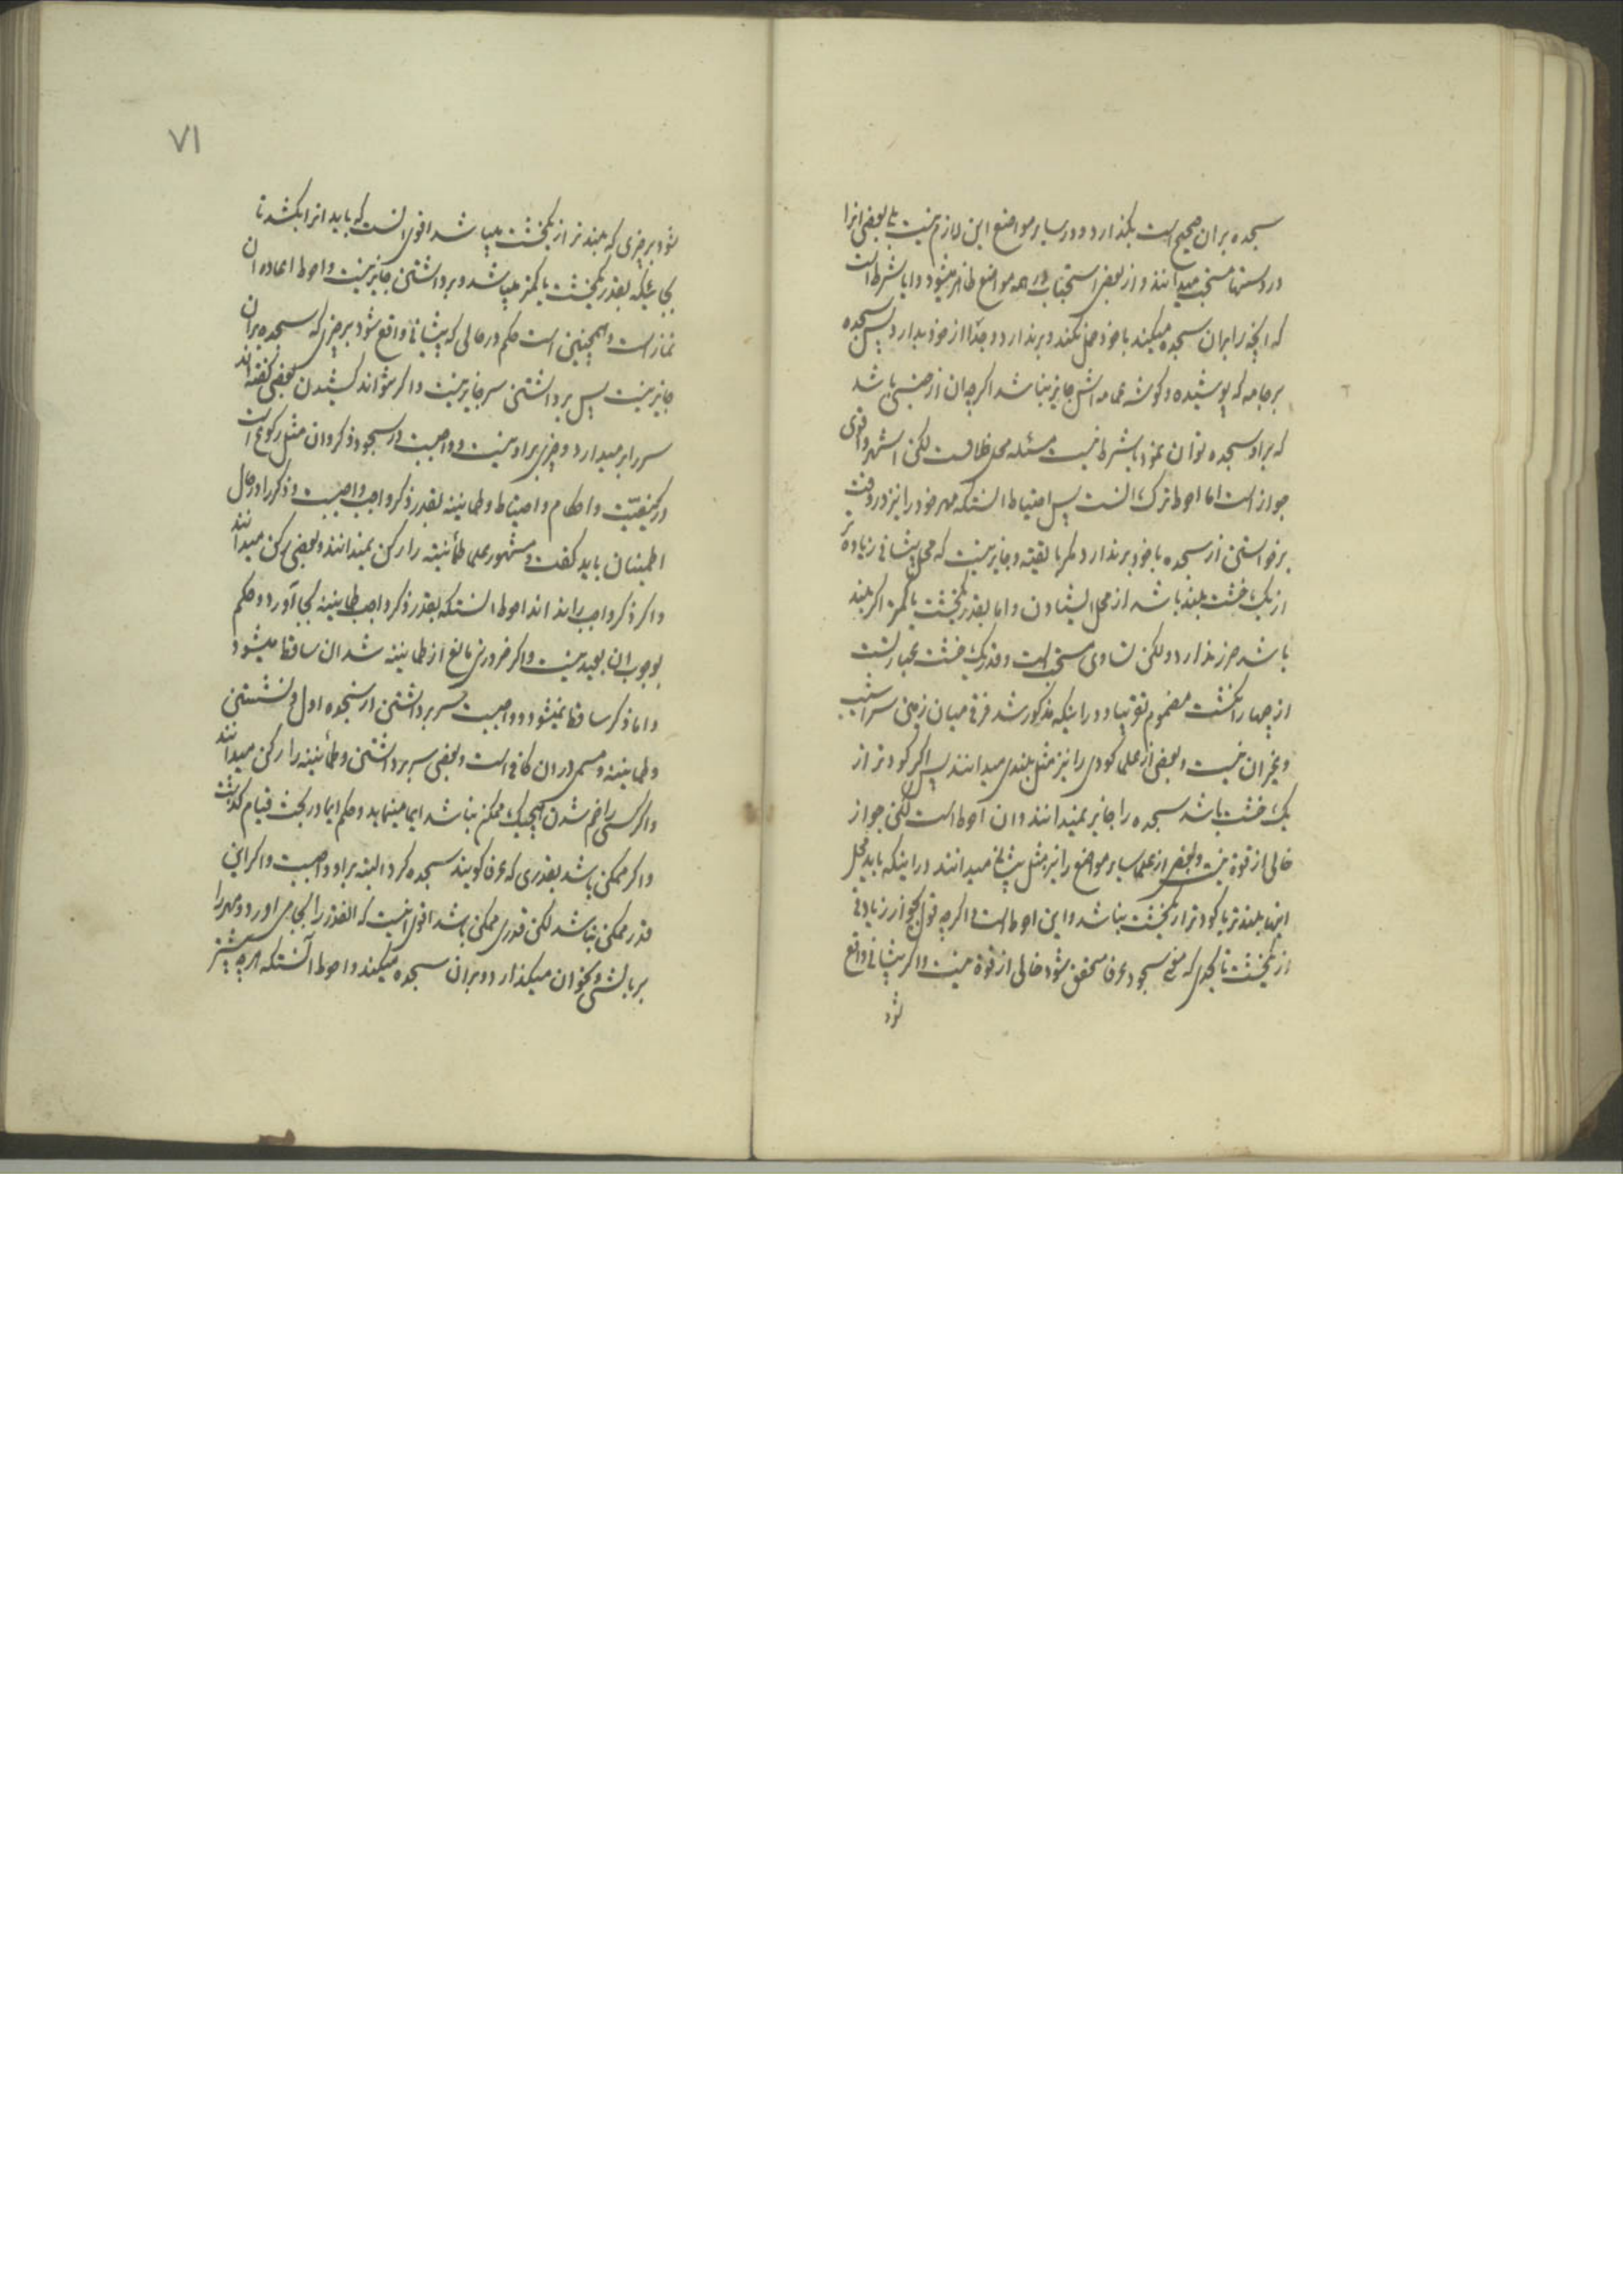 سجده بران صحیح است بکذارد و در سایر مواضع این لازم نیست بلی بعضی انرا
در دستها مستحب میدانند و از بعضی استحباب در همه مواضع ظاهر میشود و ایا شرط است
که انچه را بران سجده میکند با خود حمل نکند و برندارد و جدا از خود بدارد پس سجده
بر جامه که پوشیده و کوشه عمامه اش جایز نباشد اکرچه ان از جنسی باشد
که بر او سجده توان نمود یا شرط نیست مسئله محل خلافست لکن اشهر و اقوی
جواز است اما احوط ترک انست پس احتیاط انستکه مهر خود را نیز در وقت
برخواستن از سجده با خود برندارد مکر با تقیه و جایز نیست که محل پیشانی زیاده
از یک خشت بلند باشد از محل ایستادن و اما بقدر یکخشت یا کمتر اکر بلند
باشد ضرر ندارد و لکن تساوی مستحب است و قدر یک خشت عبارتست
از چهار انکشت مضموم تقریبا و در اینکه مذکور شد فرقی میان زمین سراشیب
و غیر ان نیست و بعضی از علما کودی را نیز مثل بلندی میدانند پس اکر کودتر از
یک خشت باشد سجده را جایز نمیدانند و ان احوط است لکن جواز
خالی از قوة نیست و بعضی از علما سایر مواضع را نیز مثل پیشانی میدانند در اینکه باید محل
اینها بلندتر یا کودتر از یکخشت نباشد و این احوط است اکرچه قول بجواز زیادتی
از یکخشت تا بحدی که معنی سجود عرفا متحقق شود خالی از قوة نیست و اکر پیشانی واقع
شود
۷۱
شود بر چیزی که بلندتر از یکخشت میباشد اقوی انست که باید انرا بکشد تا
بجائیکه بقدر یکخشت یا کمتر میباشد و برداشتن جایز نیست و احوط اعاده ان
نماز است و همچنین است حکم در حالی که پیشانی واقع شود بر چیزی که سجده بران
جایز نیست پس برداشتن سر جایز نیست و اکر نتواند کشیدن بعضی کفته اند
سر را برمیدارد و چیزی بر او نیست و واجبست در سجود ذکر و ان مثل رکوع است
در کیفیت و احکام و احتیاط و طمانینه بقدر ذکر واجب واجبست و ذکر را در حال
اطمینان باید کفت و مشهور علما طمأنینه را رکن نمیدانند و بعضی رکن میدانند
و اکر ذکر واجب را نداند احوط انستکه بقدر ذکر واجب طمانینه بجا آورد و حکم
بوجوب ان بعید نیست و اکر ضرورتی مانع از طمانینه شد ان ساقط میشود
و اما ذکر ساقط نمیشود و واجبست سر برداشتن از سجده اول و نشستن
و طمانینه و مسمی دران کافی است و بعضی سر برداشتن و طمأنینه را رکن میدانند
و اکر کسی را خم شدن هیچیک ممکن نباشد ایما مینماید و حکم ایما در بحث قیام کذشت
و اکر ممکن باشد بقدری که عرفا کویند سجده کرد البته بر او واجبست و اکر این
قدر ممکن نباشد لکن قدری ممکن باشد اقوی اینست که انقدر را بجا می اورد و مهر را
بر بالشی و نحو ان میکذارد و بران سجده میکند و احوط آنستکه هرچه بیشتر